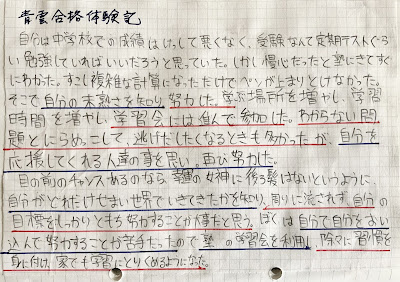 青雲合格体験記
自分は中学校での成績はけっして悪くなく、受験なんて定期テストぐら
い勉強していればいいだろうと思っていた。しかし慢心だったと塾にきてすぐ
にわかった。すこし複雑な計算になっただけでペンが止まりとけなかった。
そこで自分の未熟さを知り、努力した。学ぶ場所を増やし、学習
時間を増やし、学習会には進んで参加した。わからない問
題とにらめっこして、逃げだしたくなるときも多かったが、自分を
応援してくれる人達の事を思い、再び努力した。
目の前のチャンスあるのなら、幸運の女神に後ろ髪はないというように、
自分がどれだけせまい世界でいきてきたかを知り、周りに流されず、自分の
目標をしっかりともち努力することが大事だと思う。ぼくは自分で自分をおい
込んで努力することが苦手だったので塾の学習会を利用し、除々に習慣を
身に付け、家でも学習にとりくめるようになった。